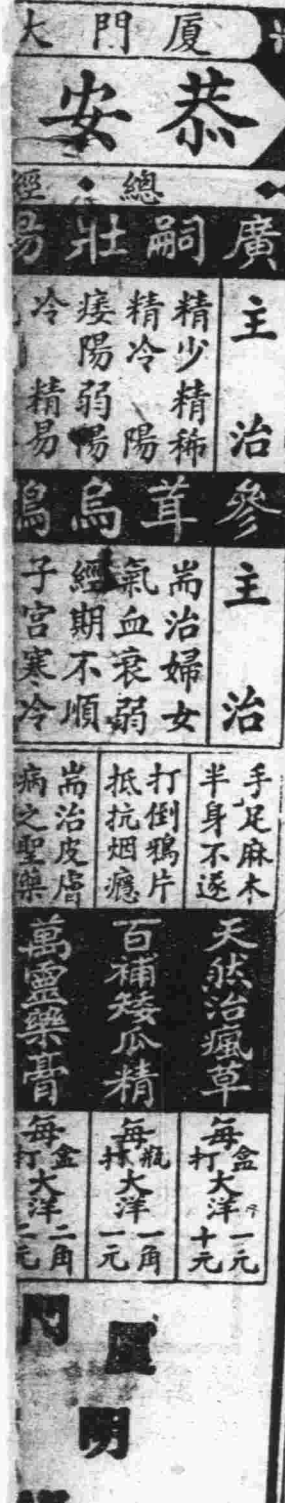 厦門大
恭安
總經
廣嗣壯陽
主治
精少精稀
精冷 陽
痿陽弱陽
冷 精易
參茸烏鷄
主治
耑治婦女
氣血衰弱
經期不順
子宮寒冷
手足麻木
半身不遂
打倒鴉片
抵抗烟癮
耑治皮膚
病之聖藥
天然治瘋草
百補矮瓜精
萬靈藥膏
每盒大洋一元
打十元
每瓶大洋一角
打一元
每盒大洋二角
打二元
厦門
明